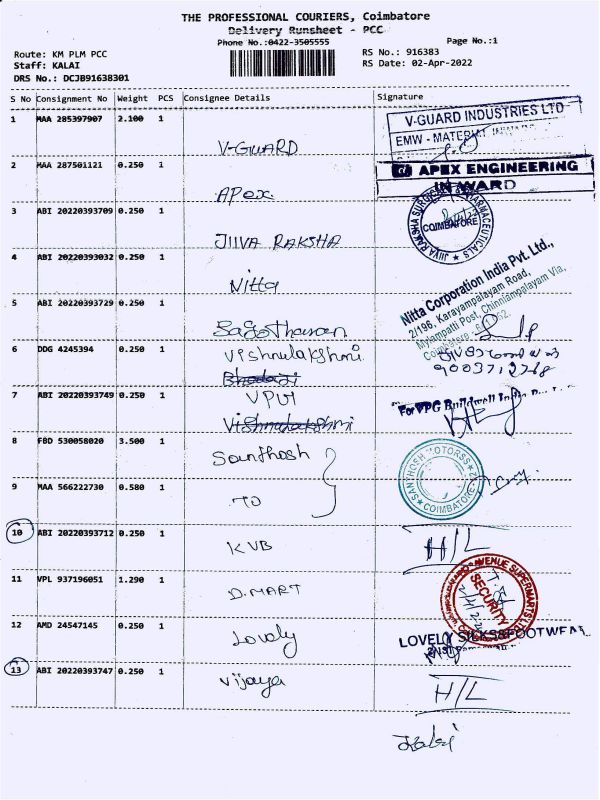 THE PROFESSIONAL COURIERS, Coimbatore
Delivery Runsheet - PCC
Phone No.:0422-3505555
Page No.:1
Route: KM PLM PCC
Staff: KALAI
DRS No.: DCJB91638301
RS No.: 916383
RS Date: 02-Apr-2022
S No Consignment No Weight PCS Consignee Details Signature
1 MAA 285397907 2.100 1 V-GUARD
V-GUARD INDUSTRIES LTD
EMW - MATERIAL INWARD
2 MAA 287501121 0.250 1 APex
APEX ENGINEERING
INWARD
3 ABI 20220393709 0.250 1 JIIVA RAKSHA
JIIVA RAKSHA SURGICAL PHARMACEUTICALS
COIMBATORE
4 ABI 20220393032 0.250 1 Nitta
Nitta Corporation India Pvt. Ltd.,
2/196, Karayampalayam Road,
Mylampatti Post, Chinniampalayam Via,
Coimbatore
5 ABI 20220393729 0.250 1
6 DDG 4245394 0.250 1 Vishnulakshmi
7 ABI 20220393749 0.250 1
Vishnulakshmi
For VPG Buildwell India
8 FBD 530058020 3.500 1 Santhosh
SANTHOSH MOTORSS
COIMBATORE
9 MAA 566222730 0.580 1 TO
10 ABI 20220393712 0.250 1 KVB H/L
11 VPL 937196051 1.290 1 D.MART
AVENUE SUPERMARTS LTD
SECURITY
12 AMD 24547145 0.250 1 Lovely
LOVELY SILKS&FOOTWEAR
13 ABI 20220393747 0.250 1 Vijaya H/L
Kalai